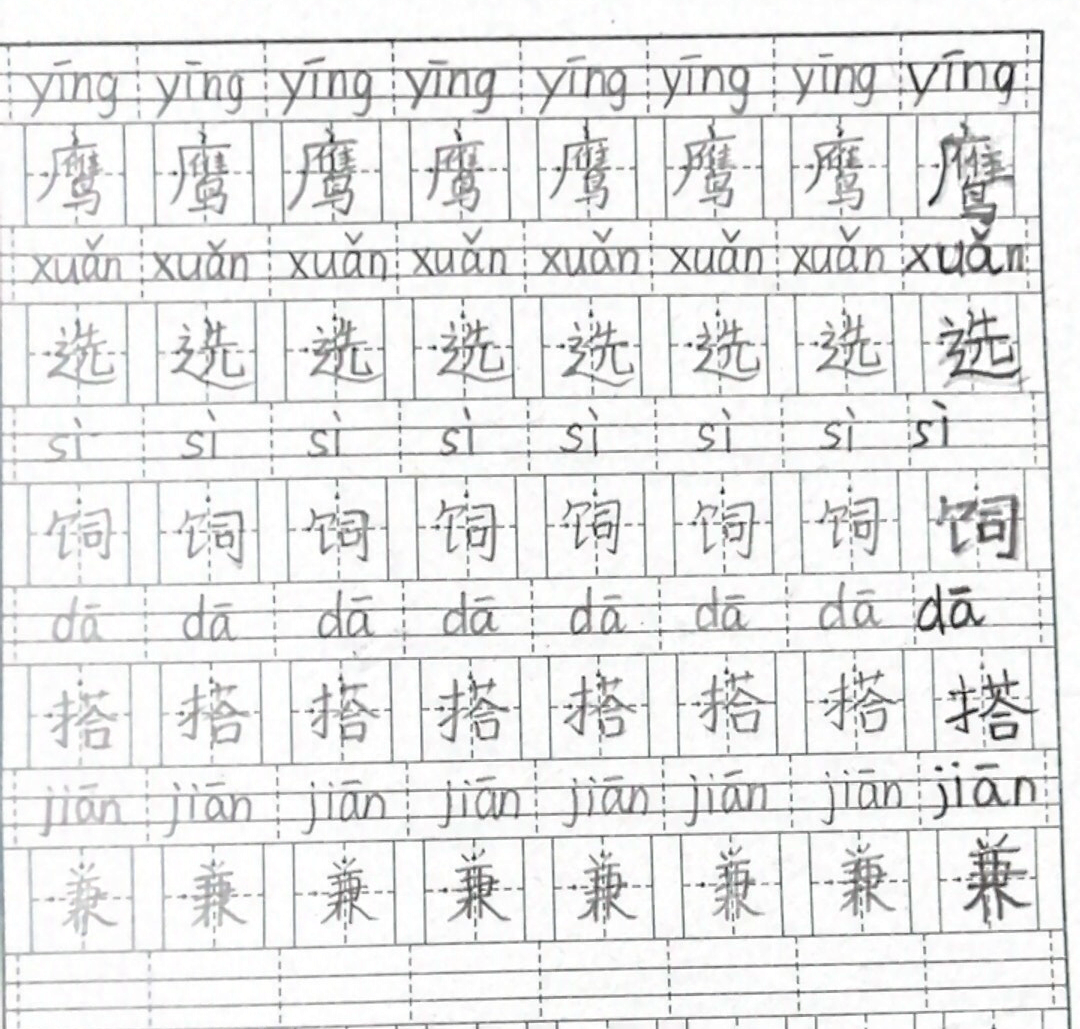 yīng yīng yīng yīng yīng yīng yīng yīng
鹰 鹰 鹰 鹰 鹰 鹰 鹰 鹰
xuǎn xuǎn xuǎn xuǎn xuǎn xuǎn xuǎn xuǎn
选 选 选 选 选 选 选 选
sì sì sì sì sì sì sì sì
饲 饲 饲 饲 饲 饲 饲 饲
dā dā dā dā dā dā dā dā
搭 搭 搭 搭 搭 搭 搭 搭
jiān jiān jiān jiān jiān jiān jiān jiān
兼 兼 兼 兼 兼 兼 兼 兼